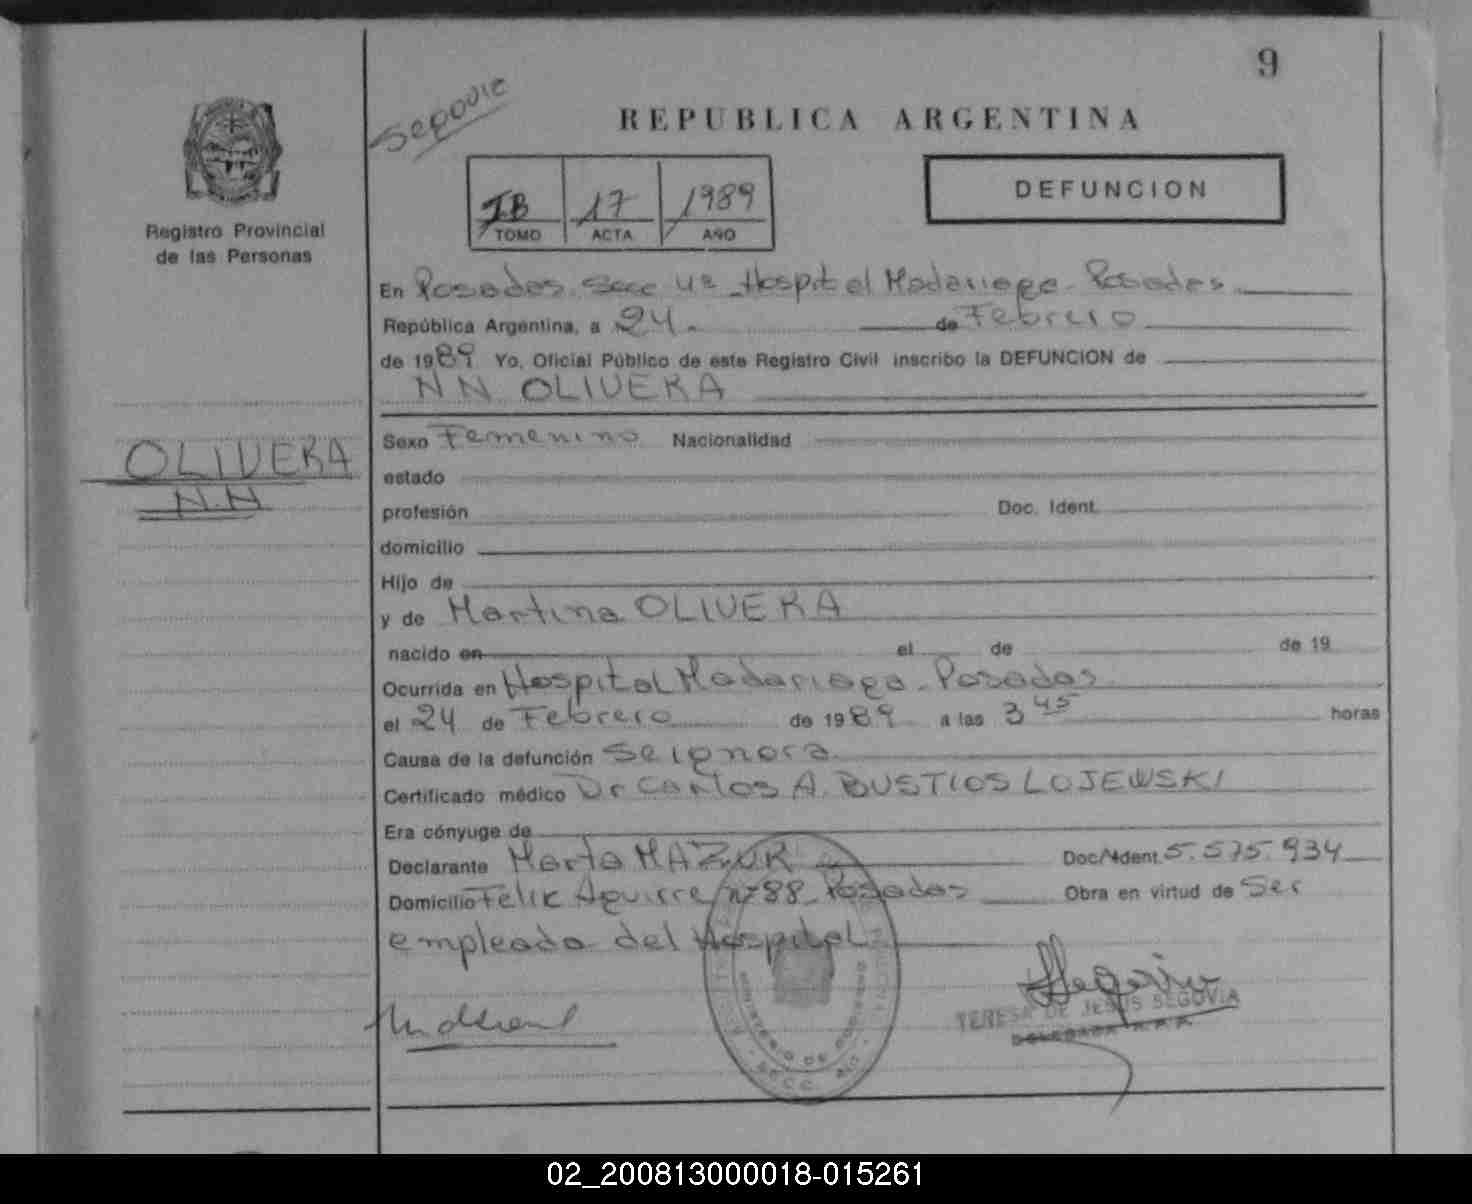 9
Segovia
REPUBLICA ARGENTINA
1B 17 1989
TOMO ACTA AÑO
DEFUNCION
Registro Provincial
de las Personas
En Posadas. Secc 4ª Hospital Madariaga - Posadas
República Argentina, a 24 de Febrero
de 1989 Yo, Oficial Público de este Registro Civil inscribo la DEFUNCION de
NN OLIVERA
OLIVERA
N.N
Sexo Femenino Nacionalidad
estado
profesión Doc. Ident.
domicilio
Hijo de
y de Martina OLIVERA
nacido en el de de 19
Ocurrida en Hospital Madariaga - Posadas
el 24 de Febrero de 1989 a las 3 45 horas
Causa de la defunción Se ignora
Certificado médico Dr Carlos A. BUSTIOS LOJEWSKI
Era cónyuge de
Declarante Marta MAZUR Doc. Ident. 5.575.934
Domicilio Felix Aguirre nº 88 - Posadas Obra en virtud de Ser
empleada del Hospital
MINISTERIO DE GOBIERNO
SECC.
TERESA DE JESUS SEGOVIA
DELEGADA R.P.P.
02_200813000018-015261